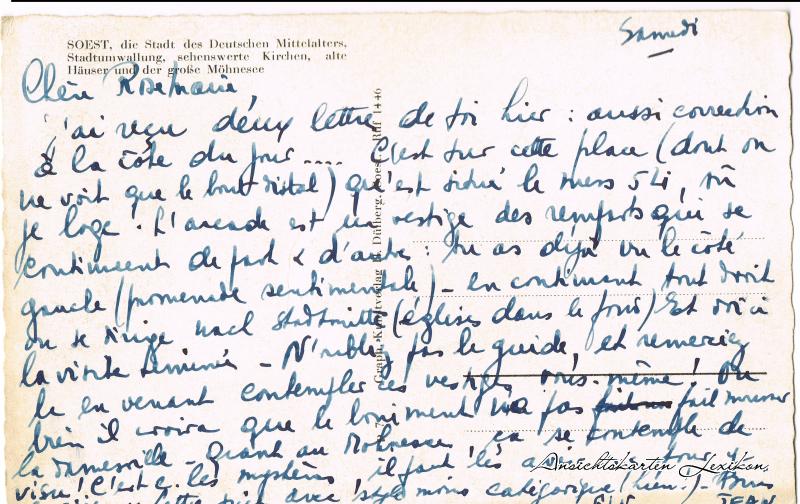 Samedi
SOEST, die Stadt des Deutschen Mittelalters,
Stadtumwallung, sehenswerte Kirchen, alte
Häuser und der große Möhnesee
Chère Rosemarie,
j'ai reçu deux lettres de toi hier : aussi correction
à la côte du jour .... C'est sur cette place (dont on
ne voit que le bout distal) qu'est situé le mess 54, où
je loge. L'arcade est un vestige des remparts qui se
continuent de part & d'autre : tu as déjà vu le côté
gauche (promenade sentimentale) – en continuant tout droit
on se dirige nach Stadtmitte (églises dans le fond) Et voici
la visite terminée – N'oubliez pas le guide, et remerciez
le en venant contempler ces vestiges vous-même ! Ou
bien il croira que le boniment n'a pas fait
la – quant au Möhnesee ça se contemple de
visu ! C'est les mystères il faut les
avec style moins catégorique
JEAN
Graph. Kunstverlag H. Dülberg, Soest, Ruf 1446
Ansichtskarten Lexikon